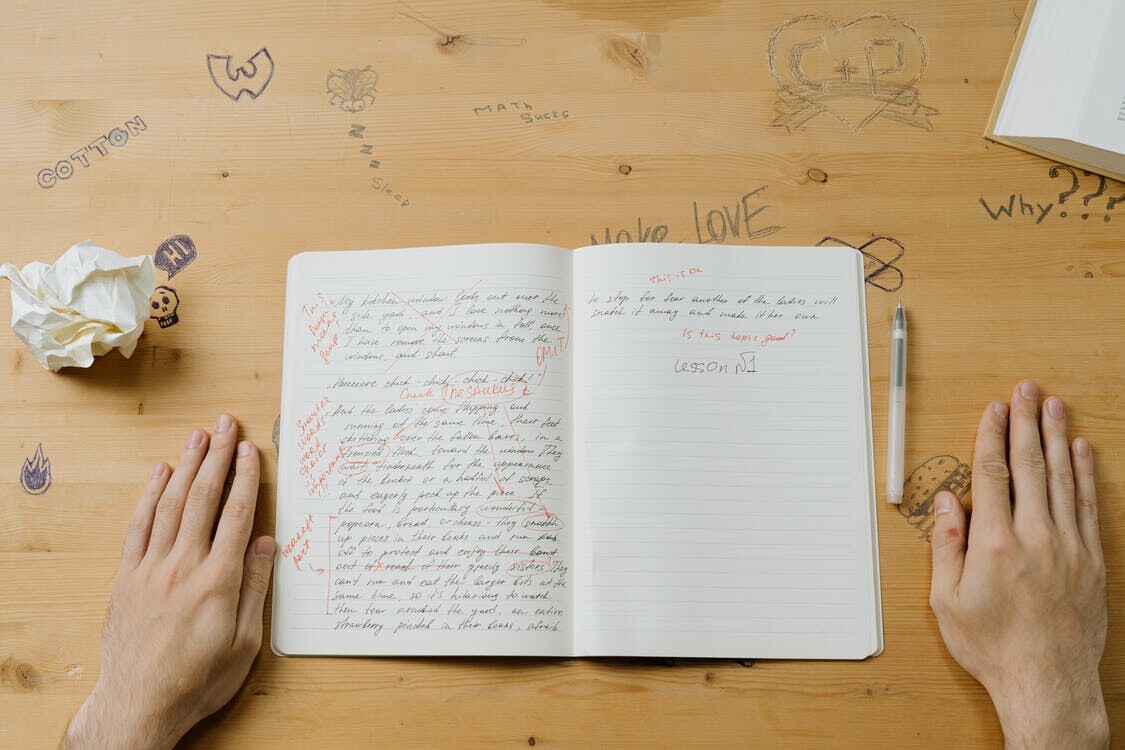 W
COTTON
N
N
N
Sleep
MATH
Sucks
C+P
Why???
HI
Make LOVE
This
jump
My kitchen window looks out over the
side yard and I love nothing more
than to open my windows in fall once
I have remove the screens from the
windows, and shout.
OMIT
chick-chick-chick-chick!"
Check THESAURUS
And the ladies come flapping and
running at the same time, their feet
skittering over the fallen leaves, in a
frenzied flock toward the window. They
wait underneath for the appearance
of the bucket or a hadful of scraps
and eagerly peck up the piece. If
the food is particulary wonderful
popcorn, bread, or cheese - they snatch
up pieces in their beaks and run and
off to protect and enjoy their
out of reach of their greedy sisters. They
can't run and eat the larger bits at the
same time, so it's hilarious to watch
them tear around the yard, an entire
strawberry pinched in their beaks, afraid
smarter
words:
word
choice
important
weakest
part
this is on
to stop for fear another of the ladies will
snatch it away and make it her own.
Is this topic good?
Lesson №1